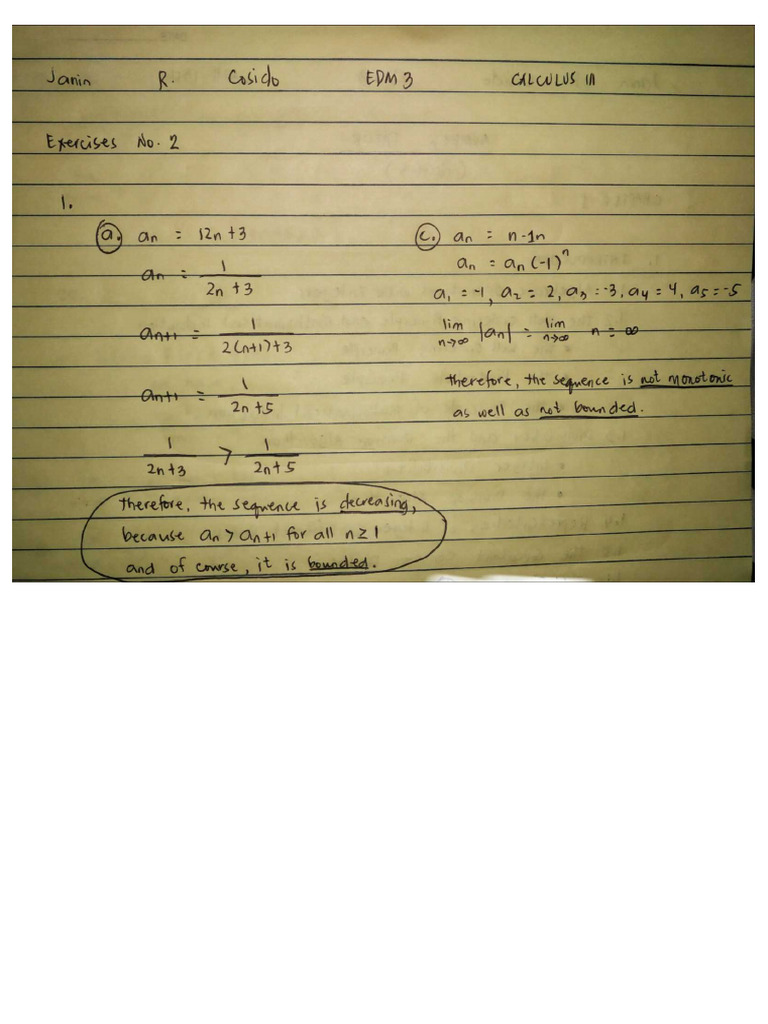 Janin R. Cosido EDM 3 CALCULUS III
Exercises No. 2
1.
a. an = 12n + 3
an = 1 / (2n + 3)
an+1 = 1 / (2(n+1)+3)
an+1 = 1 / (2n + 5)
1 / (2n + 3) > 1 / (2n + 5)
therefore, the sequence is decreasing,
because an > an+1 for all n ≥ 1
and of course, it is bounded.
c. an = n-1n
an = an (-1)^n
a1 = -1, a2 = 2, a3 = -3, a4 = 4, a5 = -5
lim n→∞ |an| = lim n→∞ n = ∞
therefore, the sequence is not monotonic
as well as not bounded.